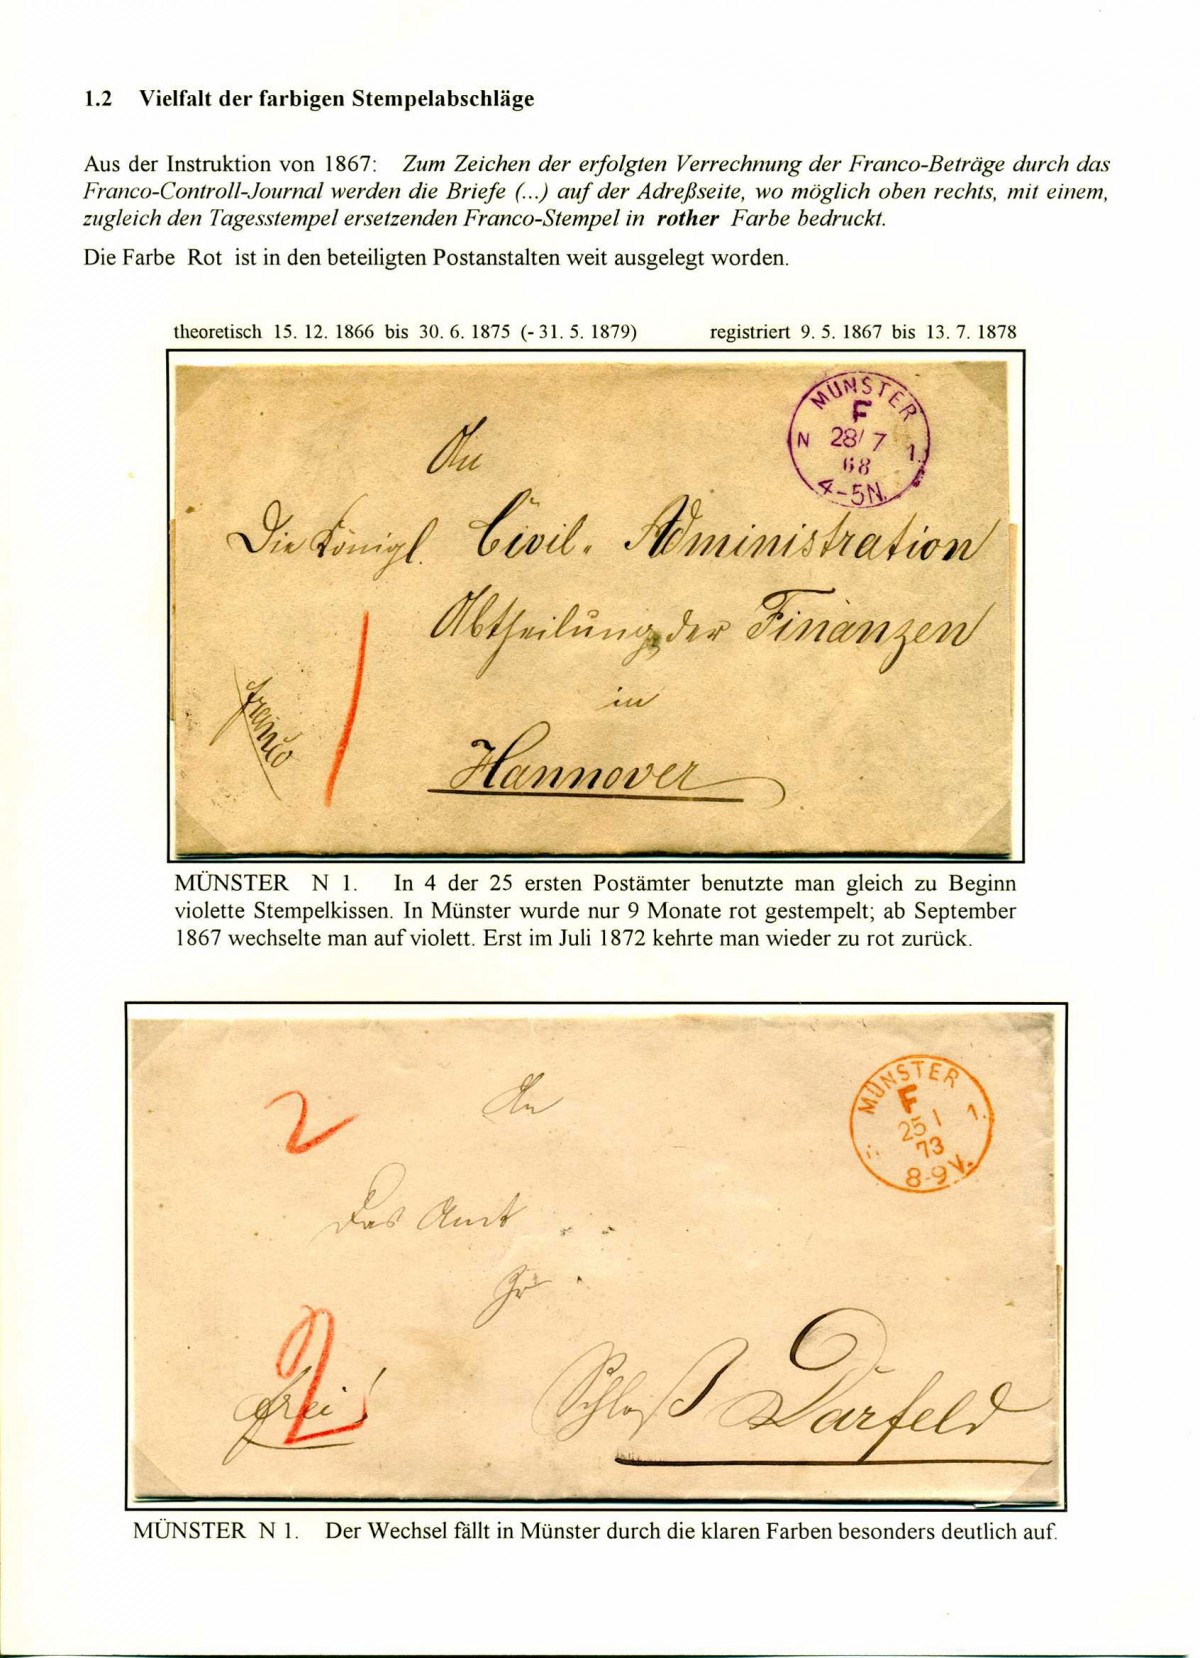 1.2 Vielfalt der farbigen Stempelabschläge
Aus der Instruktion von 1867: Zum Zeichen der erfolgten Verrechnung der Franco-Beträge durch das
Franco-Controll-Journal werden die Briefe (...) auf der Adreßseite, wo möglich oben rechts, mit einem,
zugleich den Tagesstempel ersetzenden Franco-Stempel in rother Farbe bedruckt.
Die Farbe Rot ist in den beteiligten Postanstalten weit ausgelegt worden.
theoretisch 15. 12. 1866 bis 30. 6. 1875 (- 31. 5. 1879) registriert 9. 5. 1867 bis 13. 7. 1878
MÜNSTER
F
N 28/7 1.
68
4-5N.
An
Die Königl. Civil-Administration
Abtheilung der Finanzen
in
Hannover
franco
MÜNSTER N 1. In 4 der 25 ersten Postämter benutzte man gleich zu Beginn
violette Stempelkissen. In Münster wurde nur 9 Monate rot gestempelt; ab September
1867 wechselte man auf violett. Erst im Juli 1872 kehrte man wieder zu rot zurück.
MÜNSTER
F
25 1 1.
73
8-9V.
2
An
Das Amt
zu
Schloß Darfeld
frei!
2
MÜNSTER N 1. Der Wechsel fällt in Münster durch die klaren Farben besonders deutlich auf.